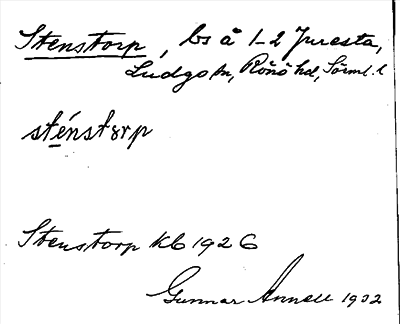 Stenstorp, bs å 1-2 Juresta,
Ludgo sn, Rönö hd, Sörml. l
sténstorp
Stenstorp Kb 1926
Gunnar Annell 1932